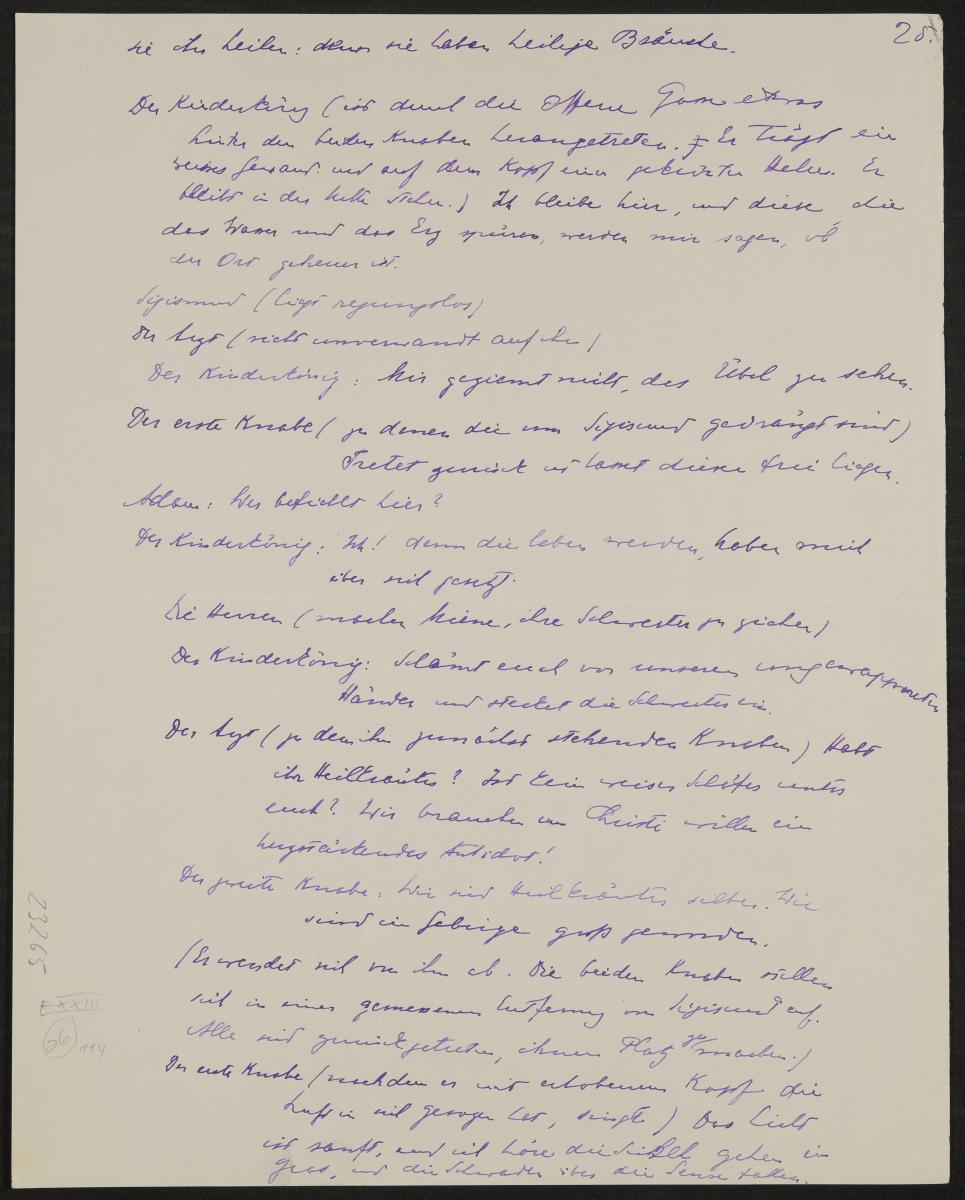 28.
sie ihn heilen: denn sie haben heilige Bräuche.
Der Kinderkönig (ist durch die offene Thür etwas
hinter den beiden Knaben herangetreten. Er trägt ein
weisses Gewand und auf dem Kopf einen gekrönten Helm. Er
bleibt in der Mitte stehen.) Ich bleibe hier, und diese die
das Wasser und das Erz spüren, werden mir sagen, ob
der Ort geheuer ist.
Sigismund (liegt regungslos)
Der Arzt (sieht unverwandt auf ihn)
Der Kinderkönig: Mir geziemt nicht, das Übel zu sehen.
Der erste Knabe (zu denen die um Sigismund gedrängt sind)
Tretet zurück und lasset diesen frei liegen.
Adam: Wer befiehlt hier?
Der Kinderkönig: Ich! denn die leben werden, haben mich
über sich gesetzt.
Die Herren (machen Miene, ihre Schwerter zu ziehen)
Der Kinderkönig: Schämt euch vor unseren ungewappneten
Händen und stecket die Schwerter ein.
Der Arzt (zu dem ihm zunächst stehenden Knaben) Habt
ihr Heilkräuter? Ist kein weiser Schäfer unter
euch? Wir brauchen um Christi willen ein
herzstärkendes Antidot!
Der zweite Knabe: Wir sind Heilkräuter selber. Wir
sind im Gebirge groß geworden.
(Er wendet sich von ihm ab. Die beiden Knaben stellen
sich in einer gemessenen Entfernung von Sigismund auf.
Alle sind zurückgetreten, ihnen Platz zu machen.)
Der erste Knabe (nachdem er mit erhobenem Kopf die
Luft in sich gezogen hat, singt) Das Licht
ist sanft, und ich höre die Sichel gehen im
Gras, und die Schwaden über die Sense fallen.
23265
E XXIII
66
114